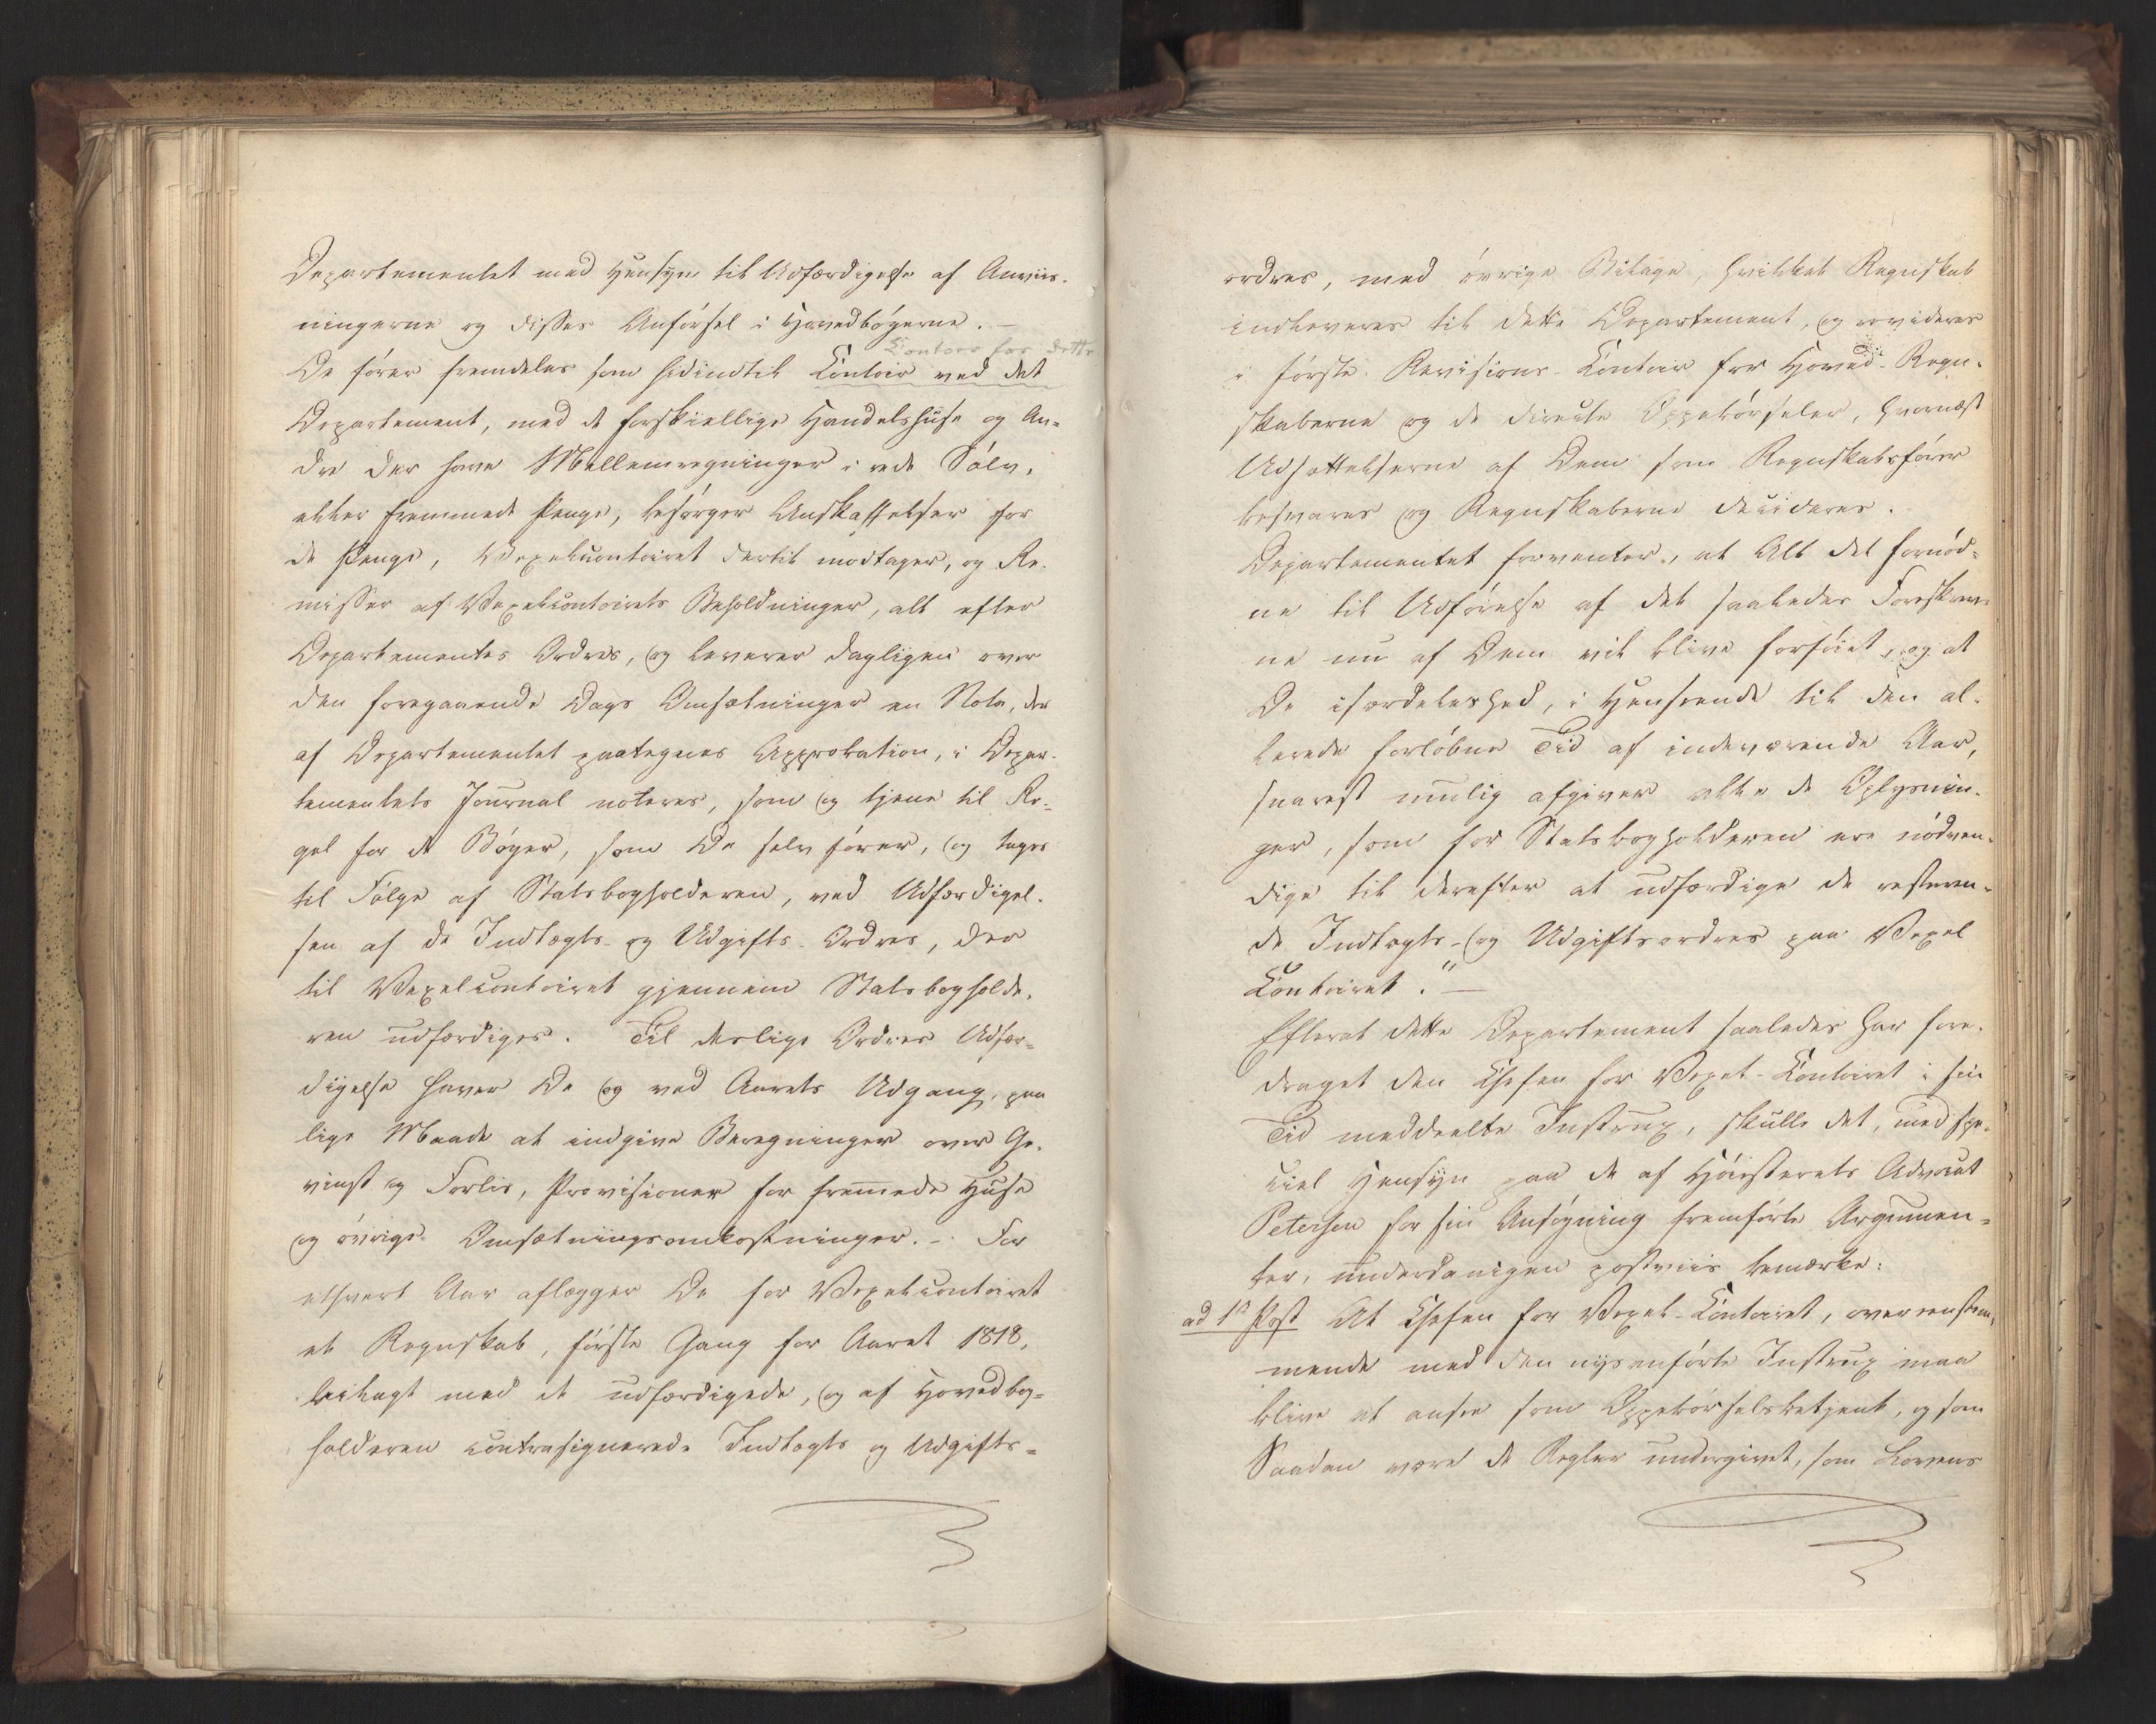 Departementet med Hensyn til Udfærdigelse af Anviis-
ningerne og disses Anførsel i Hovedbøgerne. —
Contoer for dette
De fører fremdeles som hidindtil Contoir ved det
Departement, med de forskiellige Handelshuse og An-
dre der have Mellemregninger i rede Sølv,
eller fremmede Penge, besørger Anskaffelser for
de Penge, Vexelcontoiret dertil modtager, og Re-
misser af Vexelcontoirets Beholdninger, alt efter
Departementes Ordres, og leverer dagligen over
den foregaaende Dags Omsætninger en Nota, der
af Departementet paategnes Approbation, i Depar-
tementets Journal noteres, som og tjene til Re-
gel for de Bøger, som De selv fører, og tages
til Følge af Statsbogholderen, ved Udfærdigel-
sen af de Indtægts- og Udgifts-Ordres, der
til Vexelcontoiret gjennem Statsbogholde-
ren udfærdiges. Til deslige Ordres Udfær-
digelse haver De og ved Aarets Udgang, paa
lige Maade at indgive Beregninger over Ge-
vinst og Forlis, Provisioner for fremmede Huse
og øvrige Omsætningsomkostninger. - For
ethvert Aar aflægger De for Vexelcontoiret
et Regnskab, første Gang for Aaret 1818,
bilagt med de udfærdigede, og af Hovedbog-
holderen contrasignerede Indtægts og Udgifts-
ordres, med øvrige Bilage, hvilket Regnskab
indleveres til dette Departement, og revideres
i første Revisions-Contoir for Hoved-Regn-
skaberne og de directe Oppebørseler, hvornæst
Udsættelserne af Dem som Regnskabsfører
besvares og Regnskaberne decideres.
Departementet forventer, at Alt det fornød-
ne til Udførelse af det saaledes Foreskrev-
ne nu af Dem vil blive forføiet, og at
De isærdeleshed, i Henseende til den al-
lerede forløbne Tid af indeværende Aar,
snarest mulig afgiver alle de Oplysnin-
ger, som for Statsbogholderen ere nødven-
dige til derefter at udfærdige de resteren-
de Indtægts- og Udgiftsordres paa Vexel
Contoiret." —
Efterat dette Departement saaledes har fore-
draget den Chefen for Vexel-Contoiret i sin
Tid meddeelte Instrux, skulle det, med spe-
ciel Hensyn paa de af Høiesterets Advocat
Petersen for sin Ansøgning fremførte Argumen-
ter, underdanigen postviis bemærke:
ad 1ste Post At Chefen for Vexel-Contoiret, overeenstem-
mende med den nysanførte Instrux maa
blive at ansee som Oppebørselsbetjent, og som
Saadan være de Regler undergivet, som Lovens